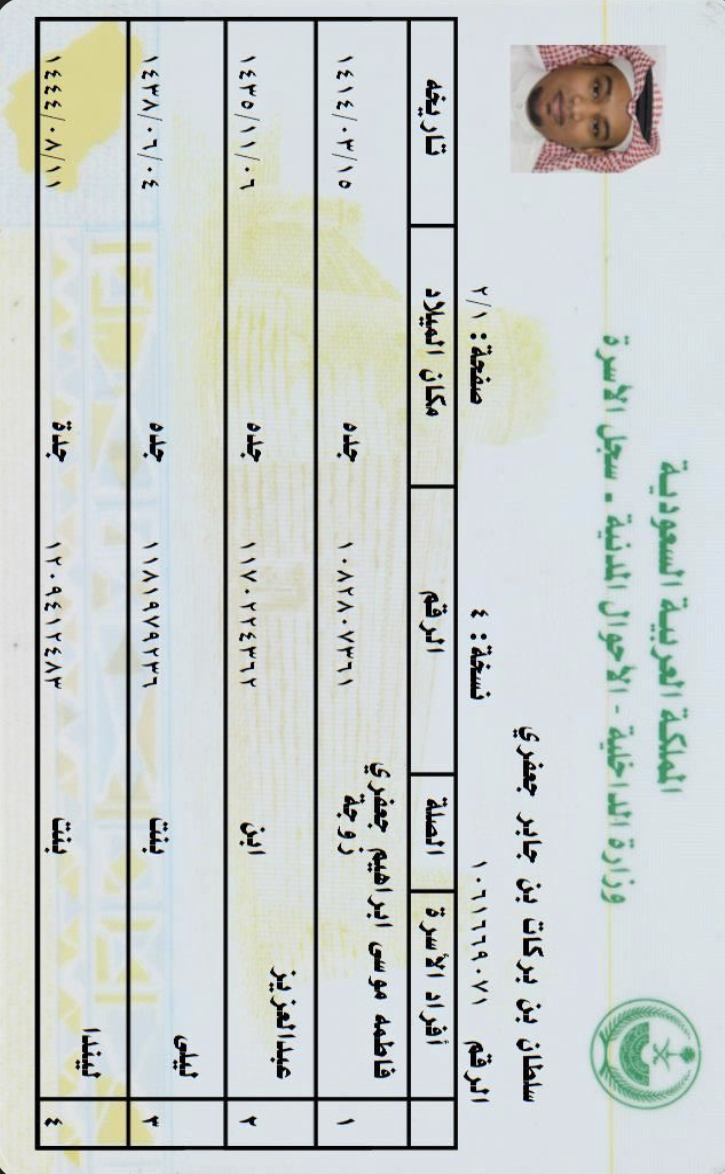 المملكة العربية السعودية
وزارة الداخلية - الأحوال المدنية - سجل الأسرة
سلطان بن بركات بن جابر جعفري
الرقم ١٠٦١٦٦٩٠٧١ نسخة : ٤ صفحة : ٢/١
أفراد الأسرة الصلة الرقم مكان الميلاد تاريخه
١ فاطمه موسى ابراهيم جعفري زوجة ١٠٨٢٨٠٧٣٦١ جده ١٤١٤/٠٣/١٥
٢ عبدالعزيز ابن ١١٧٠٢٢٤٣٦٢ جده ١٤٣٥/١١/٠٦
٣ ليلى بنت ١١٨١٩٧٩٢٣٦ جده ١٤٣٨/٠٦/٠٤
٤ ليندا بنت ١٢٠٩٤١٢٤٨٣ جدة ١٤٤٤/٠٨/١١